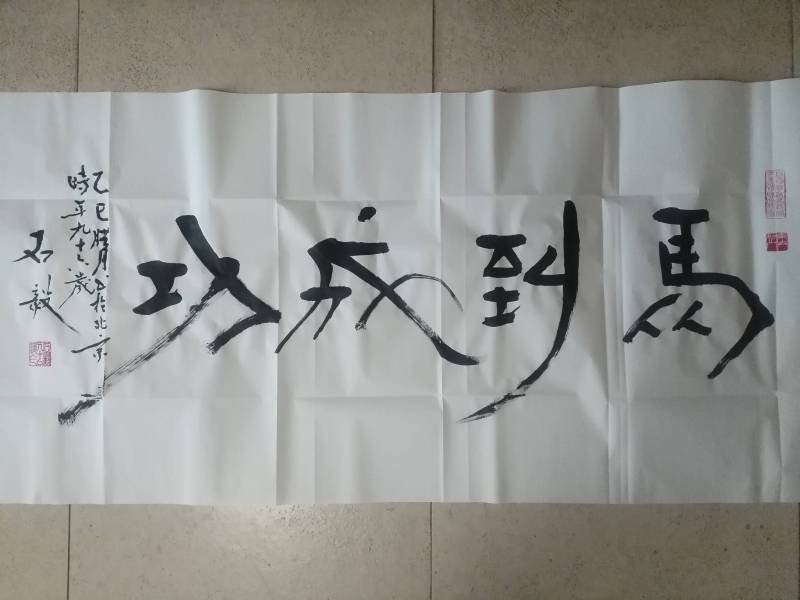 馬到成功
乙巳腊月书於北京
時年九十六歲
石毅